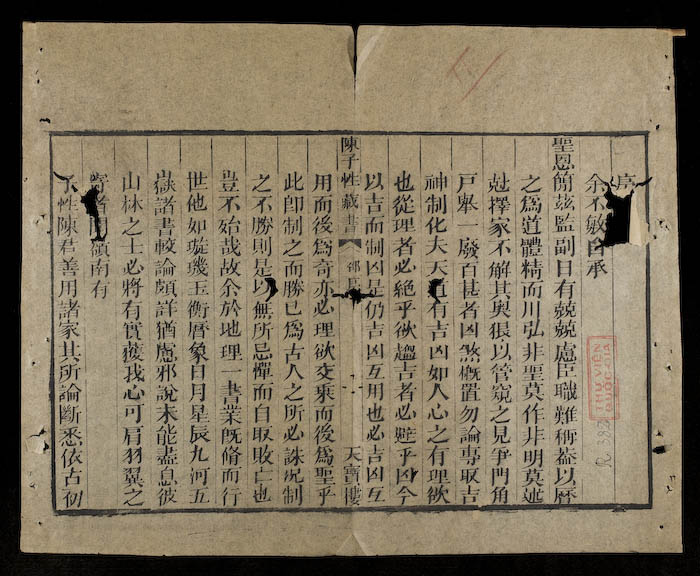 序
余不敏自承
聖恩簡玆監副日有兢兢慮臣職難稱蓋以曆
之爲道體精而用弘非聖莫作非明莫述
尅擇家不解其奧狠以管窺之見爭門角
戶舉一廢百甚者凶煞概置勿論專取吉
神制化夫天道有吉凶如人心之有理欲
也從理者必絶乎欲趨吉者必避乎凶今
以吉而制凶是仍吉凶互用也必吉凶互
陳子性藏書
天寶樓
用而後爲奇亦必理欲交乘而後爲聖乎
此卽制之而勝已爲古人之所必誅况制
之不勝則是以無所忌憚而自取敗亡也
豈不殆哉故余於地理一書業旣脩而行
世他如璇璣玉衡曆象日月星辰九河五
嶽諸書較論頗詳猶慮邪說未能盡息彼
山林之士必將有實獲我心可肩羽翼之
寄者聞嶺南有
子性陳君善用諸家其所論斷悉依古初
THƯ VIỆN
QUỐC GIA